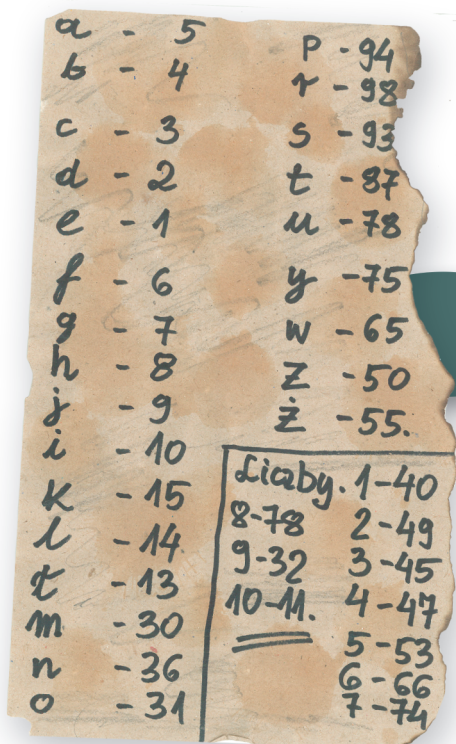 a - 5
b - 4
c - 3
d - 2
e - 1
f - 6
g - 7
h - 8
j - 9
i - 10
k - 15
l - 14
ł - 13
m - 30
n - 36
o - 31
p - 94
r - 98
s - 93
t - 87
u - 78
y - 75
w - 65
z - 50
ż - 55.
Liczby. 1-40
8-78 2-49
9-32 3-45
10-11. 4-47
5-53
6-66
7-74